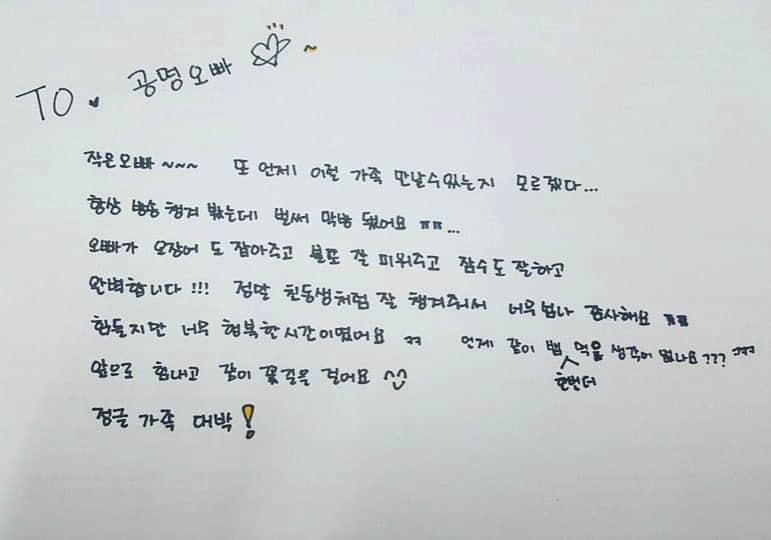 TO. 공명오빠 ~
작은오빠 ~~~ 또 언제 이런 가족 만날수있는지 모르겠다...
항상 방송 챙겨 봤는데 벌써 막방 됐어요 ㅠㅠ...
오빠가 오징어 도 잡아주고 불도 잘 피워주고 잠수도 잘하고
완벽합니다 !!! 정말 친동생처럼 잘 챙겨줘서 너무 감사해요 ㅠㅠ
힘들지만 너무 행복한 시간이었어요 ㅋㅋ 언제 같이 밥 한번더 먹을 생각이 없나요 ??? ㅋㅋㅋ
앞으로 힘내고 같이 꽃길을 걸어요 ^^
정글 가족 대박!